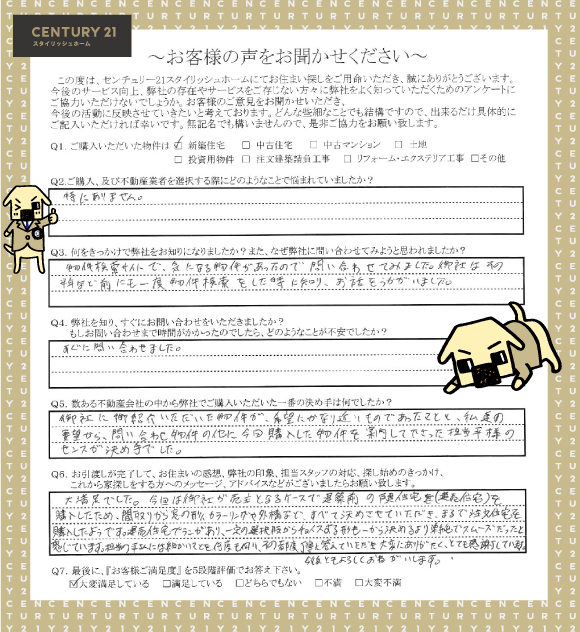 CENTURY 21
スタイリッシュホーム
～お客様の声をお聞かせください～
この度は、センチュリー21スタイリッシュホームにてお住まい探しをご用命いただき、誠にありがとうございます。
今後のサービス向上、弊社の存在やサービスをご存じない方々に弊社をよく知っていただくためのアンケートに
ご協力いただけないでしょうか。お客様のご意見をお聞かせいただき、
今後の活動に反映させていきたいと考えております。どんな些細なことでも結構ですので、出来るだけ具体的に
ご記入いただければ幸いです。無記名でも構いませんので、是非ご協力をお願い致します。
Q1. ご購入いただいた物件は ☑ 新築住宅 □ 中古住宅 □ 中古マンション □ 土地
□ 投資用物件 □ 注文建築請負工事 □ リフォーム・エクステリア工事 □その他
Q2.ご購入、及び不動産業者を選択する際にどのようなことで悩まれていましたか？
特にありません。
Q3. 何をきっかけで弊社をお知りになりましたか？また、なぜ弊社に問い合わせてみようと思われましたか？
物件検索サイトで、気になる物件があったので問い合わせてみました。御社は
前にも一度物件検索をした時に知り、お話をうかがいました。
Q4. 弊社を知り、すぐにお問い合わせをいただきましたか？
もしお問い合わせまで時間がかかったのでしたら、どのようなことが不安でしたか？
すぐに問い合わせました。
Q5. 数ある不動産会社の中から弊社でご購入いただいた一番の決め手は何でしたか？
御社に御紹介いただいた物件が、希望にかなり近いものであったことと、私達の
要望から、問い合わせ物件の他に今回購入した物件を案内して下さった担当者様の
センスが決め手でした。
Q6. お引渡しが完了して、お住まいの感想、弊社の印象、担当スタッフの対応、探し始めのきっかけ、
これから家探しをする方へのメッセージ、アドバイスなどがございましたらお願い致します。
大満足でした。今回は御社が売主となるケースで建築前の
購入したため、間取りから窓の形、カラーリングや外構など、すべて決めさせていただき、まるで注文住宅を
購入したようです。
感じています。
今後ともよろしくお願いします。
Q7. 最後に、『お客様ご満足度』を5段階評価でお答え下さい。
☑大変満足している □満足している □どちらでもない □不満 □大変不満
CENTURY 21